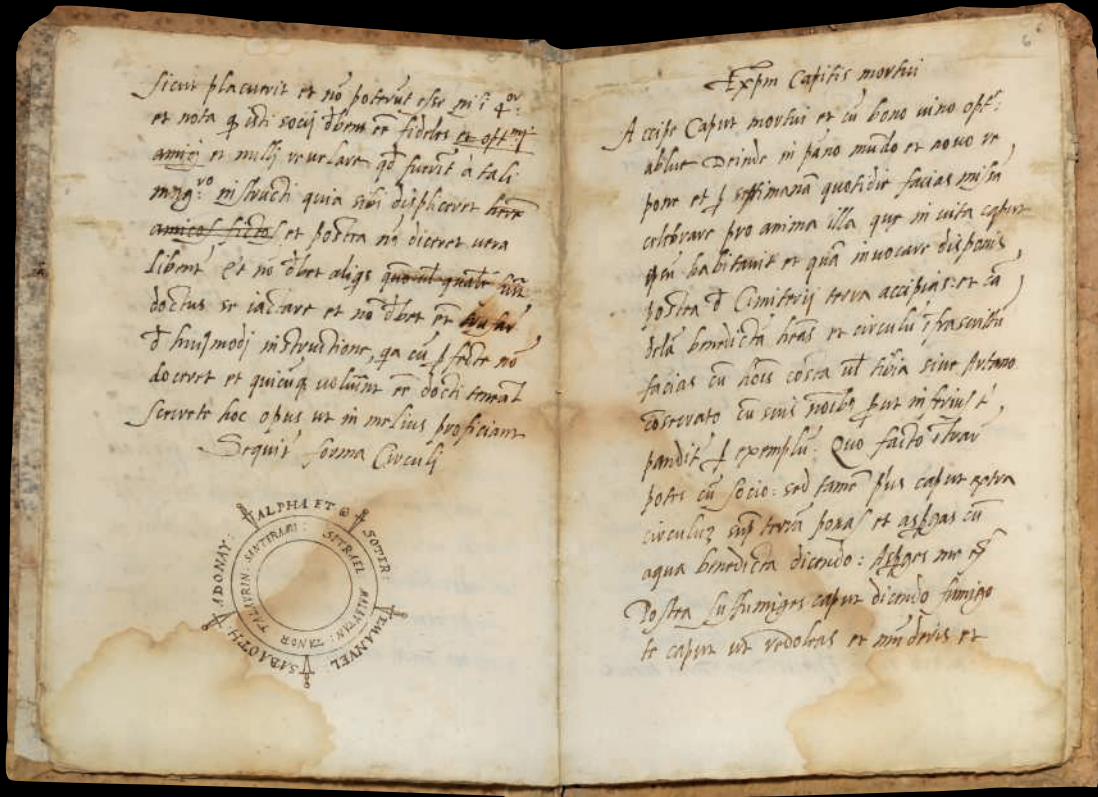 sicut placuerit et nō poterūt esse nisi 4.or
et nota q̄ isti socij dbent eē fideles et opt.mj
amicj et nullj revelare qd fuerīt à tali
mag.ro instructi quia sibi displiceret
amicos fictos et postea nō diceret vera
libent' Et nō dbet aliqs
doctus se iactare et nō dbet eē
d huiusmodj instructione, qa cū pfecte nō
doceret et quicūq volunt eē doctj teneāt
secrete hoc opus ut in melius proficiant
Sequit' forma Circulj
ALPHA ET ω
SOTER:
EMANVEL
SABAOTH:
ADONAY:
SITRAEL
MALANTAN:
TANOR
TALAVRIN:
SANTERAMI:
6
Expm Capitis mortui
Accipe Caput mortui et cū bono vino opt.e
ablue Deinde in pāno mūdo et novo re
pone et p septimanā quotidie facias misā
celebrare pro anima illa que in vita caput
ipsū habitavit et quā invocare disponis
postea d Cimiterij terra accipias: et cā
delā benedictā heas et circulū īfrascriptū
facias cū hois costa ul tibia sive Artano
cōsecrato cū suis noibꝫ put inferius
pandit' p exemplū: Quo facto ītrar
potes cū socio: sed tamē pus caput extra
circuluꝫ sup terrā ponas et aspgas cū
aqua benedicta dicendo: Aspges me
Postea suffumiges caput dicendo fumigo
te caput ut redoleas et mūderis et